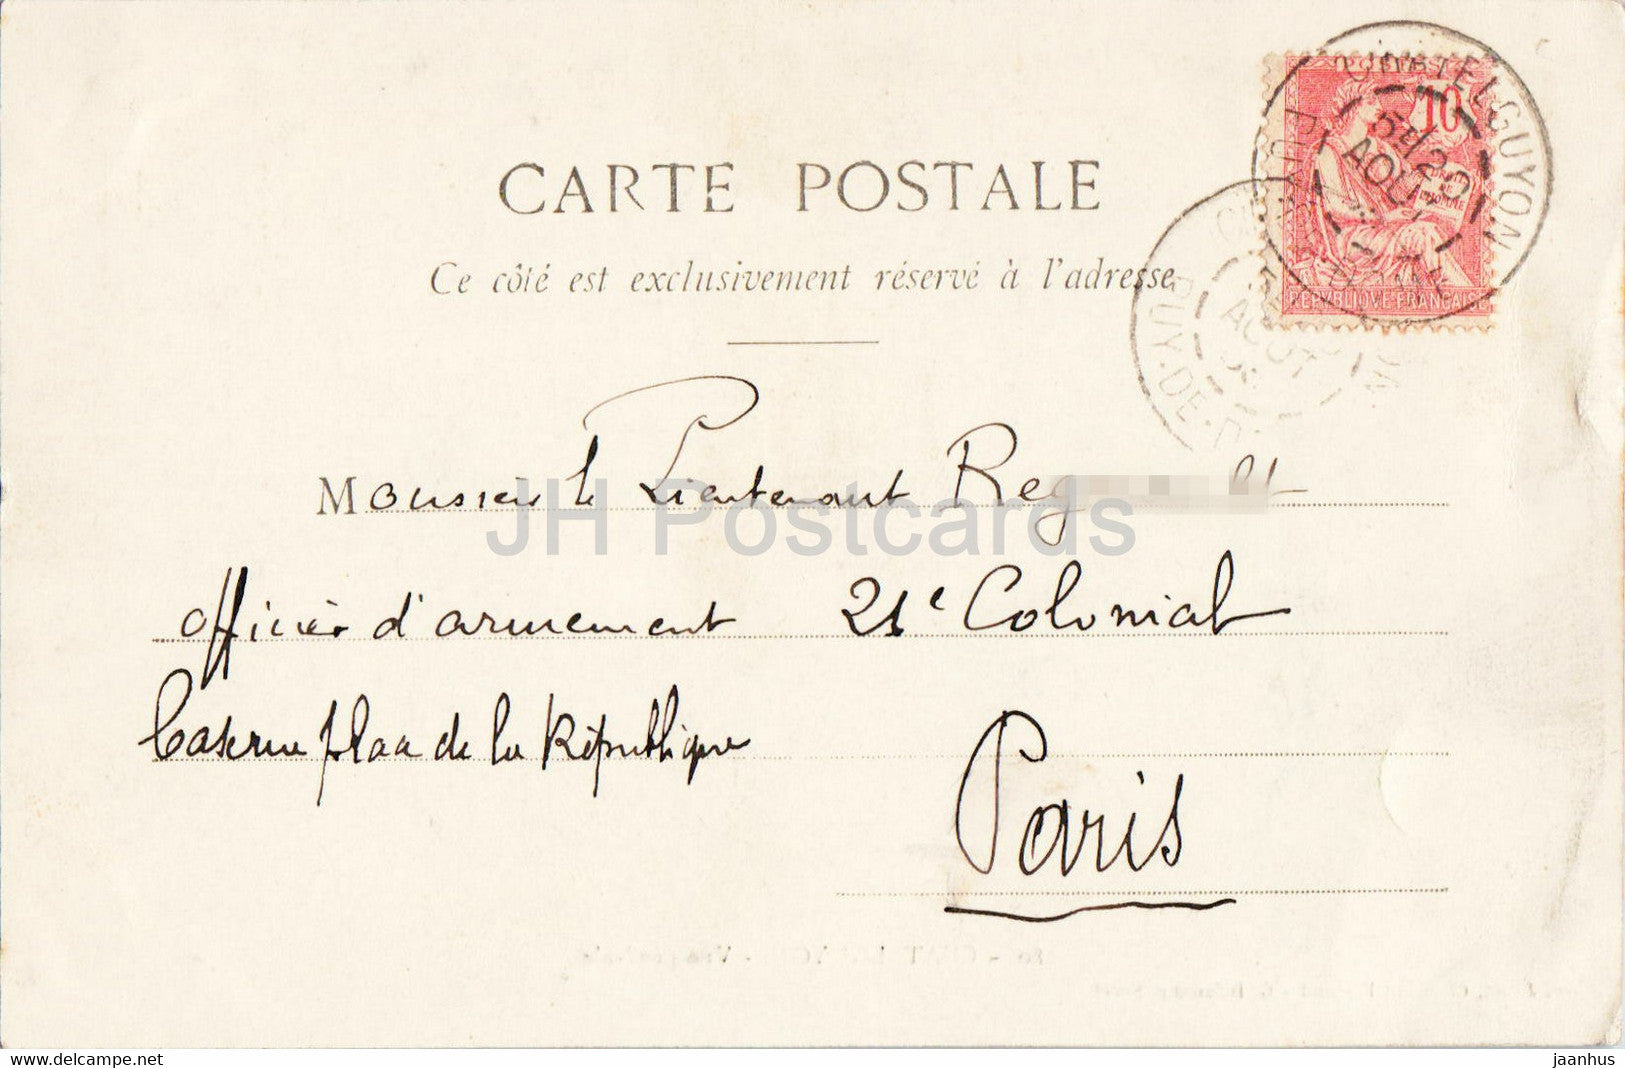 CARTE POSTALE
Ce côté est exclusivement réservé à l'adresse
POSTES
10
REPVBLIQVE FRANÇAISE
CHATELGUYON
PUY-DE-DOME
AOUT
PUY-DE-D
AOUT
Monsieur le Lieutenant Reg
JH Postcards
officier d'armement 21e Colonial
Caserne place de la République
Paris
delcampe.net
jaanhus